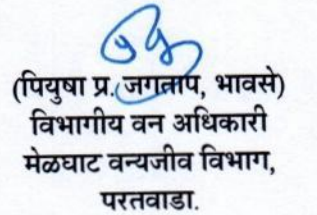 (पियुषा प्र. जगताप, भावसे)
विभागीय वन अधिकारी
मेळघाट वन्यजीव विभाग,
परतवाडा.